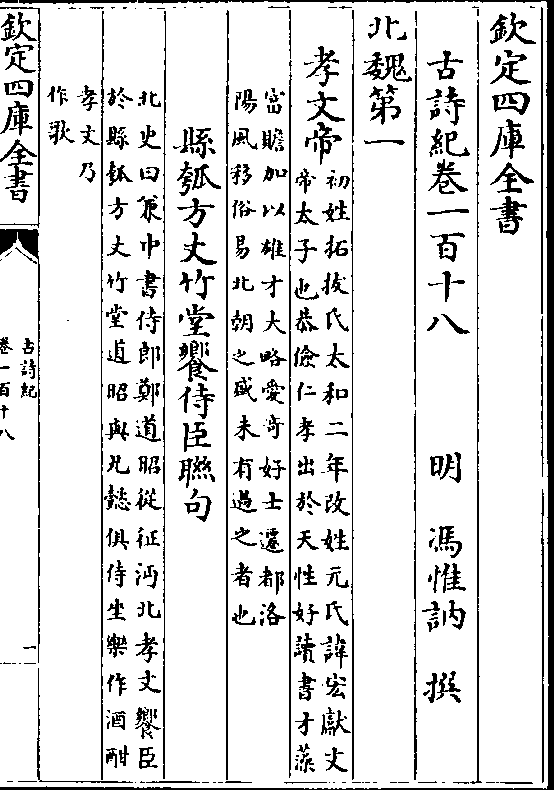 欽定四庫全書
古詩紀卷一百十八　明　馮惟訥　撰
北魏第一
孝文帝
初姓拓拔氏太和二年改姓元氏諱宏獻文
帝太子也恭儉仁孝出於天性好讀書才藻
富贍加以雄才大略愛奇好士遷都洛
陽風移俗易北朝之盛未有過之者也
縣瓠方丈竹堂饗侍臣聯句
北史曰魏中書侍郎鄭道昭從征沔北孝文饗臣
於縣瓠方丈竹堂道昭與兄懿俱侍坐樂作酒酣
孝文乃
作歌
欽定四庫全書
古詩紀
卷一百十八
一